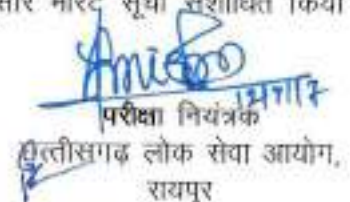 सार मेरिट सूची संशोधित किया
परीक्षा नियंत्रक
छत्तीसगढ़ लोक सेवा आयोग,
रायपुर